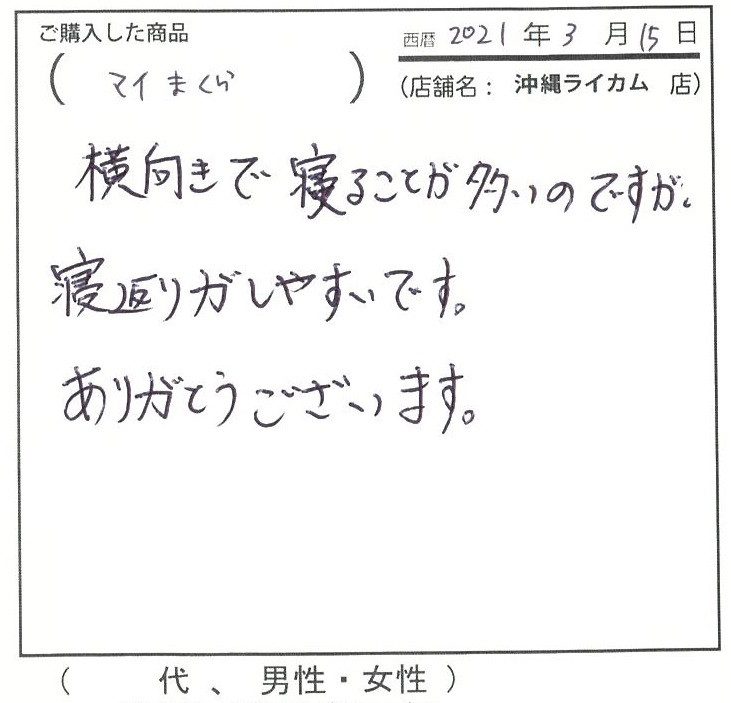 ご購入した商品
西暦 2021 年 3 月 15 日
( マイまくら )
(店舗名： 沖縄ライカム 店)
横向きで寝ることが多いのですが、
寝返りがしやすいです。
ありがとうございます。
( 代 、 男性・女性 )